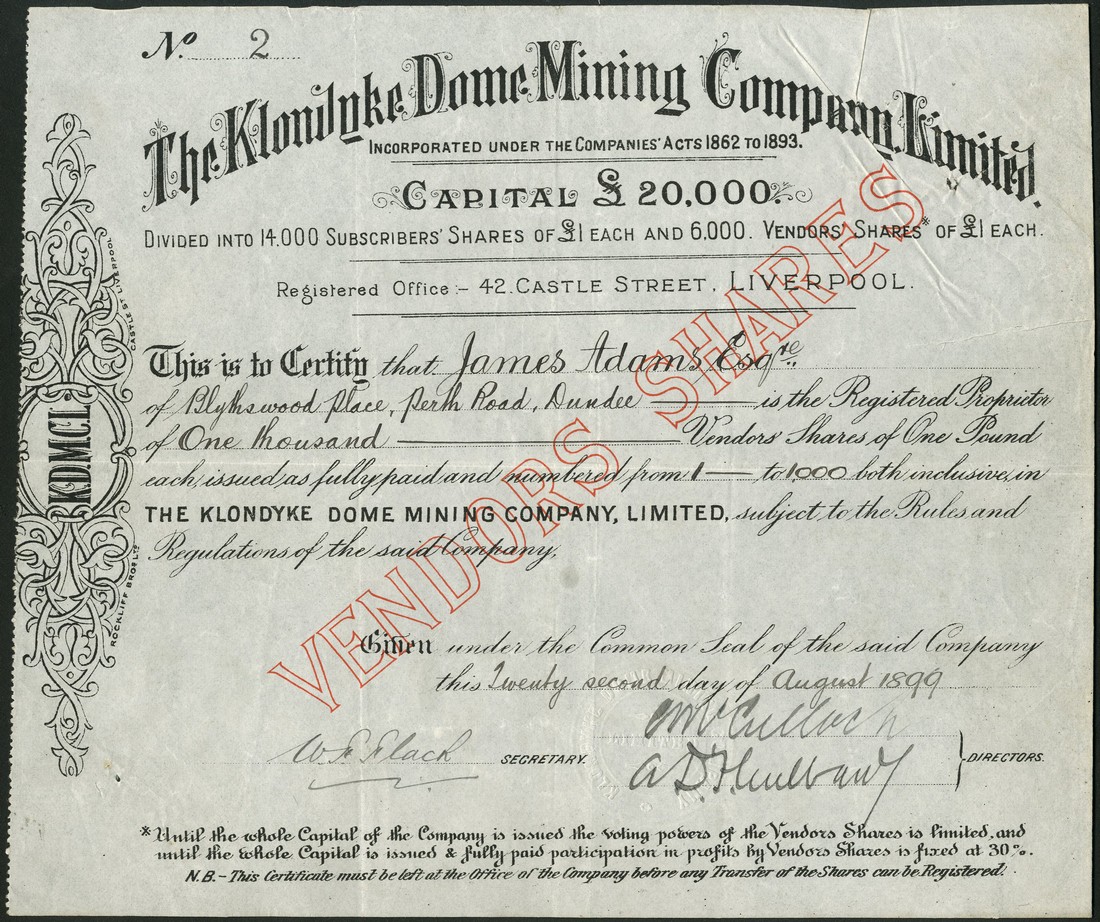 No. 2
The Klondyke Dome Mining Company, Limited.
INCORPORATED UNDER THE COMPANIES' ACTS 1862 TO 1893.
CAPITAL £ 20,000.
DIVIDED INTO 14.000 SUBSCRIBERS' SHARES OF £1 EACH AND 6,000. VENDORS' SHARES* OF £1 EACH.
Registered Office:- 42. CASTLE STREET, LIVERPOOL.
This is to Certify that James Adams Esqre
of Blythswood Place, Perth Road, Dundee is the Registered Proprietor
of One thousand Vendors' Shares of One Pound
each, issued as fully paid and numbered from 1 to 1000 both inclusive, in
THE KLONDYKE DOME MINING COMPANY, LIMITED, subject to the Rules and
Regulations of the said Company.
VENDORS SHARES
Given under the Common Seal of the said Company
this Twenty second day of August 1899
W. F. Flack SECRETARY.
McCulloch
DIRECTORS.
*Until the whole Capital of the Company is issued the voting powers of the Vendors Shares is limited, and
until the whole Capital is issued & fully paid participation in profits by Vendors Shares is fixed at 30%.
N.B. - This Certificate must be left at the Office of the Company before any Transfer of the Shares can be Registered.
KDMCL
ROCKLIFF BROS LTD
CASTLE ST LIVERPOOL